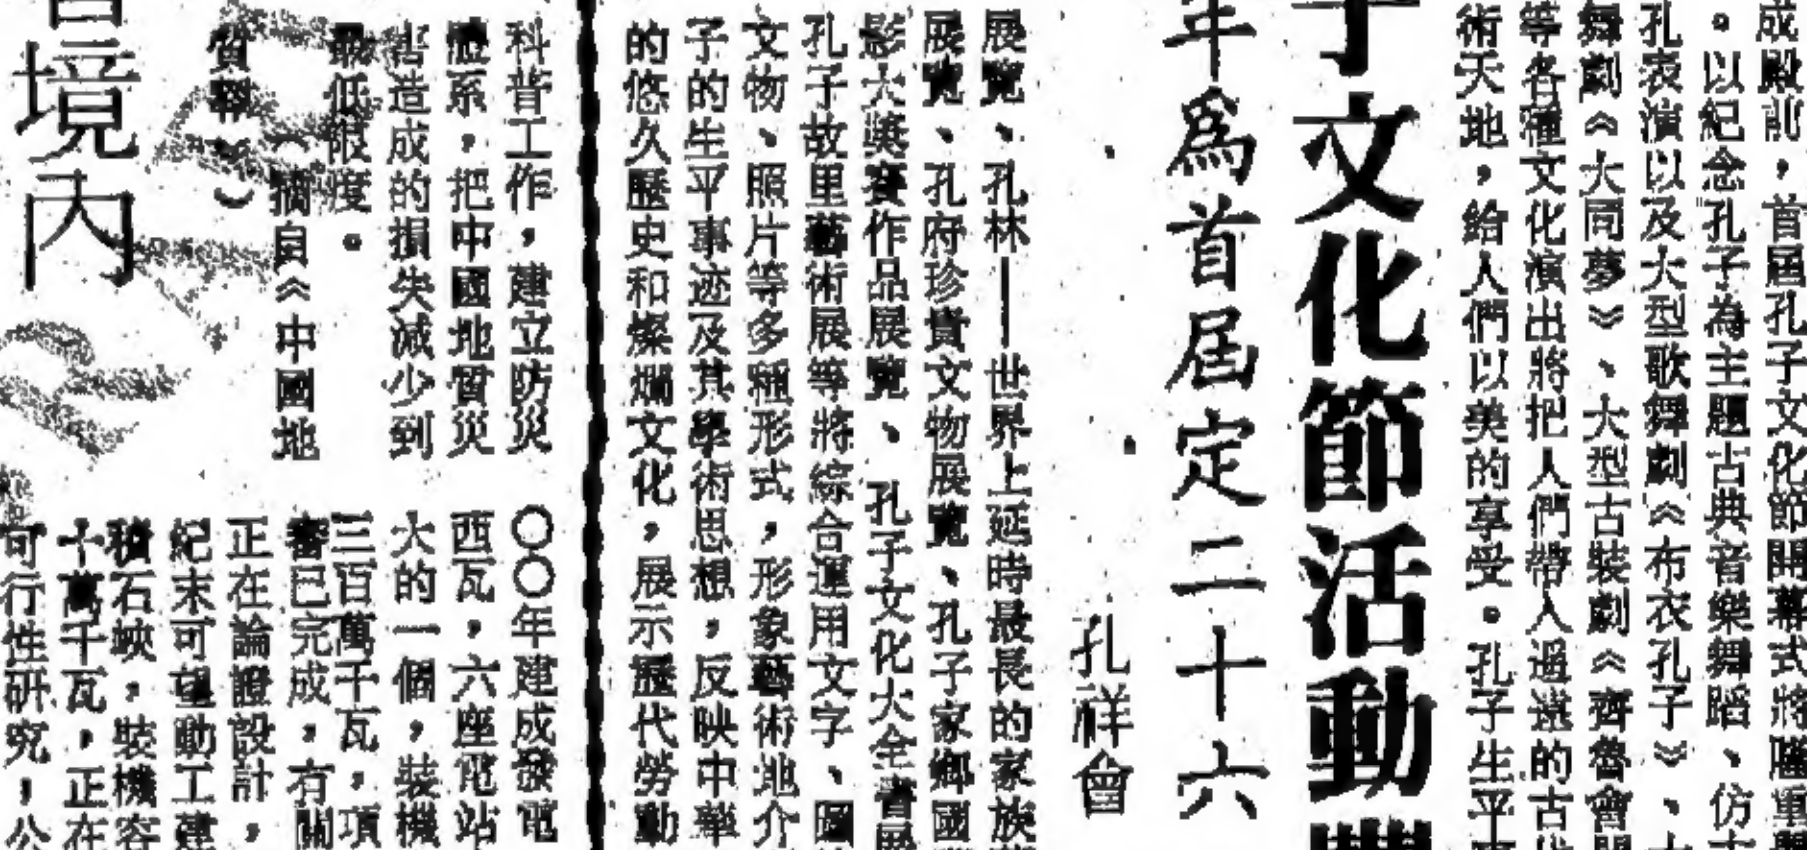 成殿前，首屆孔子文化節開幕式將隆重
。以紀念孔子為主題古典音樂舞蹈、仿
孔表演以及大型歌舞劇《布衣孔子》、
舞劇《大同夢》、大型古裝劇《齊魯會
等各種文化演出將把人們帶入遥遠的古
術天地，給人們以美的享受。孔子生平
子文化節活動
年為首屆定二十六
孔祥會
展覽、孔林—世界上延時最長的家族
展覽、孔府珍貴文物展覽、孔子家鄉國
影大獎賽作品展覽、孔子文化大全書展
孔子故里藝術展等將綜合運用文字、圖
文物、照片等多種形式，形象藝術地介
子的生平事迹及其學術思想，反映中華
的悠久歷史和燦爛文化，展示歷代勞動
科普工作，建立防災
體系，把中國地質災
害造成的損失減少到
最低限度。
（摘自《中國地
質報》）
〇〇年建成發電
西瓦，六座電站
大的一個，裝機
三百萬千瓦，項
審已完成，有關
正在論證設計，
紀末可望動工建
積石峽，裝機容
十萬千瓦，正在
可行性研究，公
境內